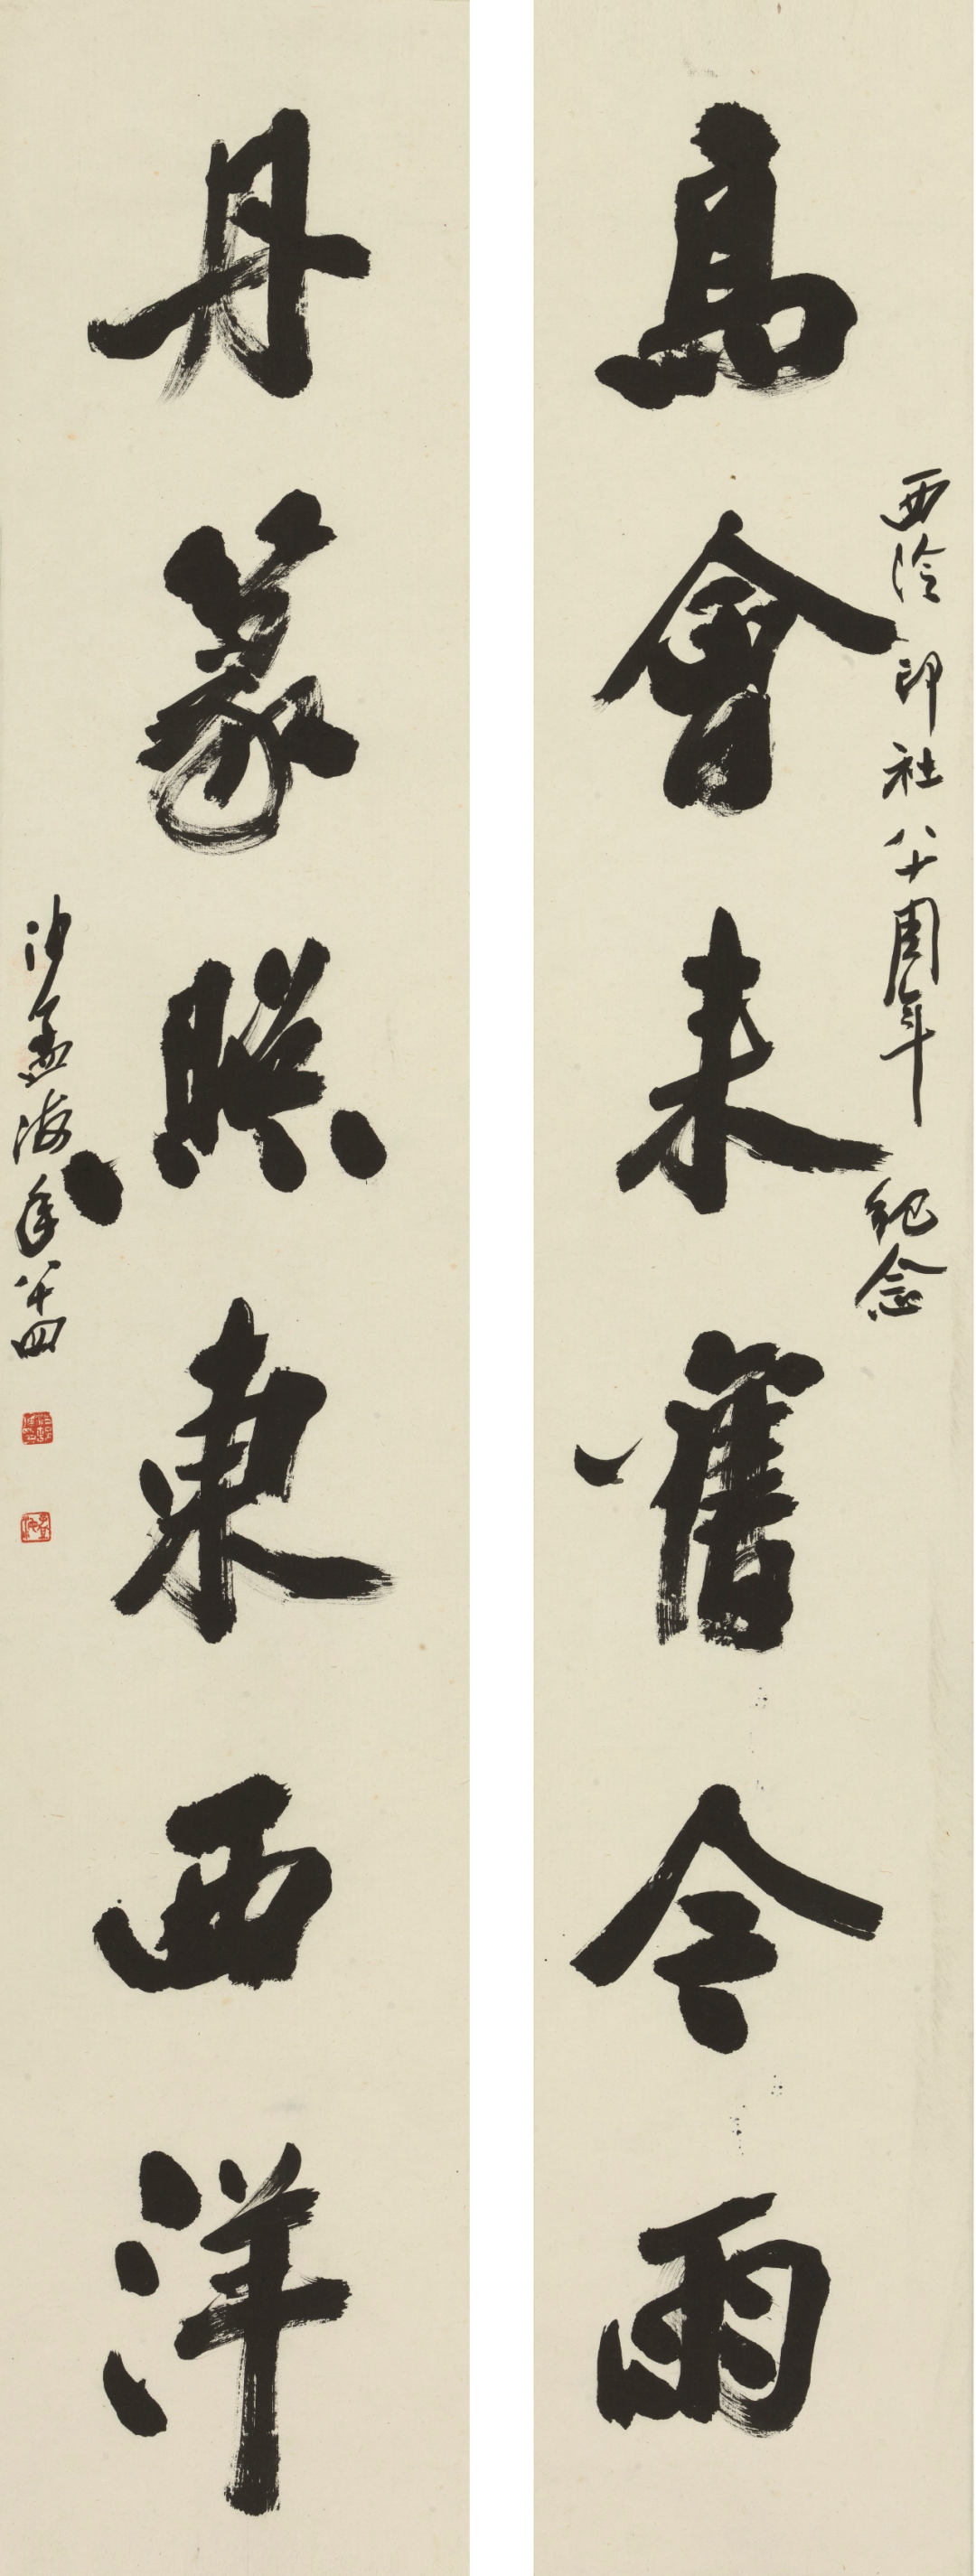 高會來舊今雨
西泠印社八十周年紀念
丹篆照東西洋
沙孟海年八十四